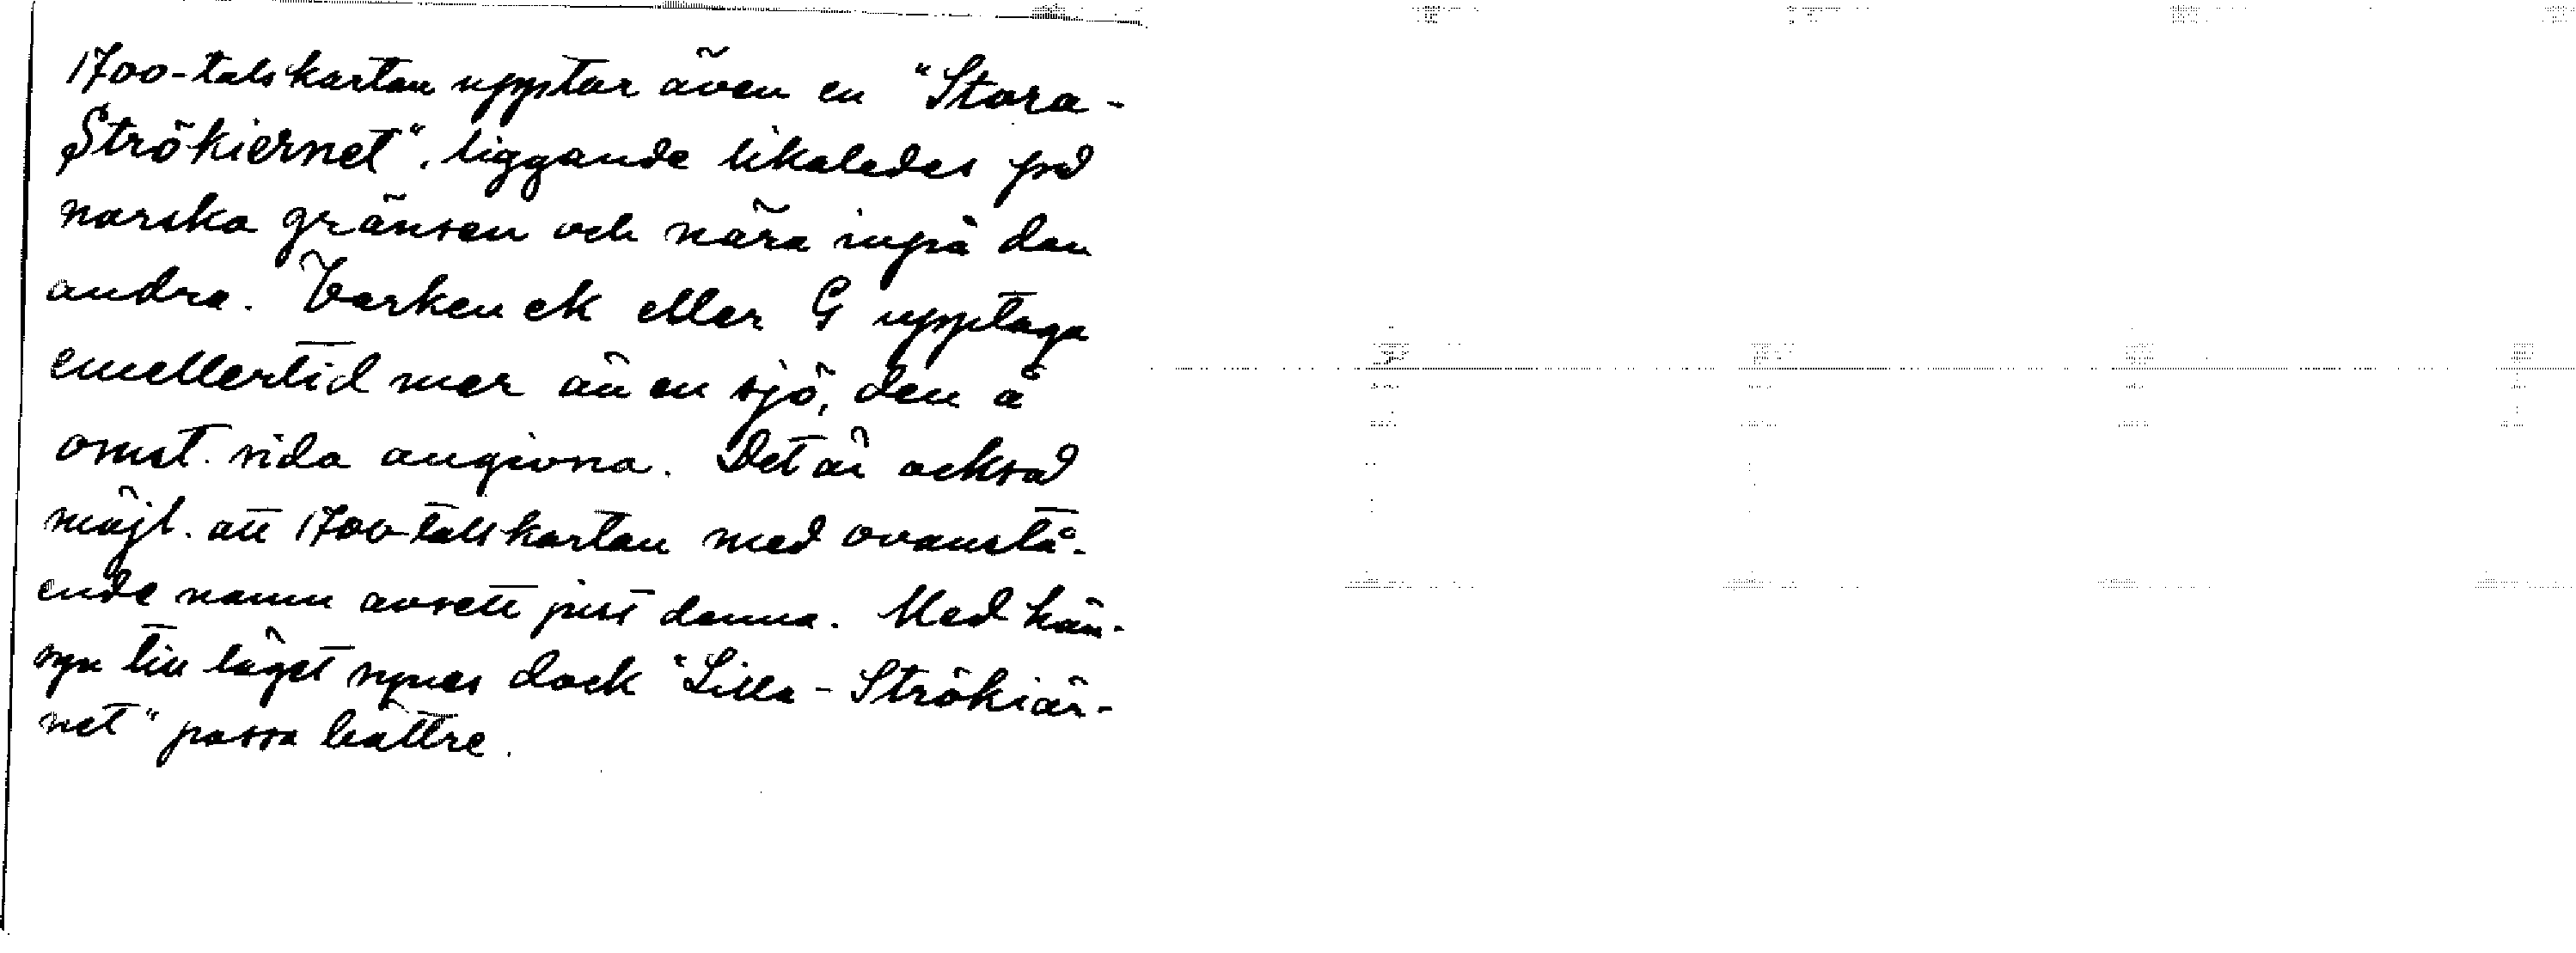 1700-talskartan upptar även en "Stora-
Strökiernet", liggande likaledes på
norska gränsen och nära inpå den
andra. Varken ek eller G upptaga
emellertid mer än en sjö, den å
omst. sida angivna. Det är också
möjl. att 1700-talskartan med ovanstå-
ende namn avsett just denna. Med hän-
syn till läget synes dock "Lilla-Strökiär-
net" passa bättre.